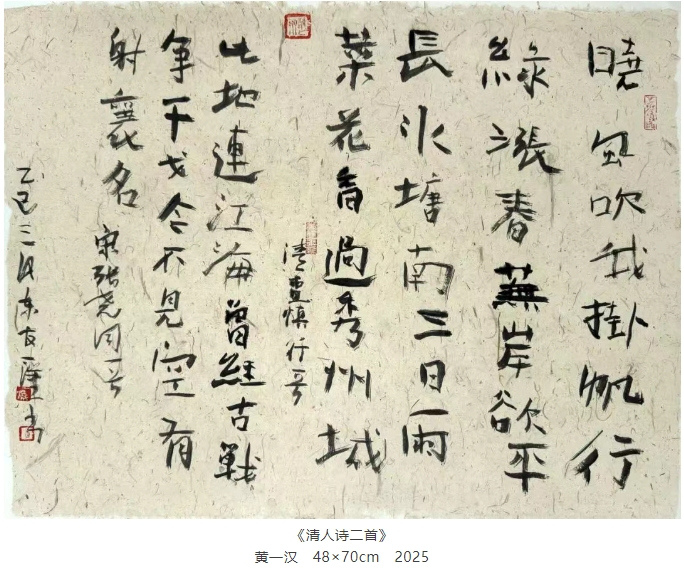 曉風吹我掛帆行
綠漲春蕪岸欲平
長水塘南三日雨
菜花香過秀州城
清查慎行一首
此地連江海曾經古戰
争干戈今不見空有
射襄名
宋張堯同一首
乙巳三月
《清人诗二首》
黄一汉 48×70cm 2025